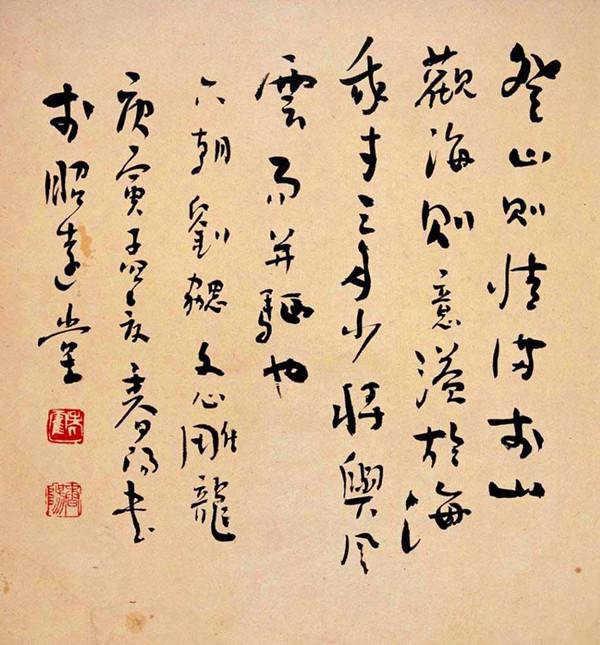 登山則情滿於山
觀海則意溢於海
我才之多少將與風
雲而并驅也
六朝劉勰文心雕龍
庚寅子夜陽書
於昭遠堂